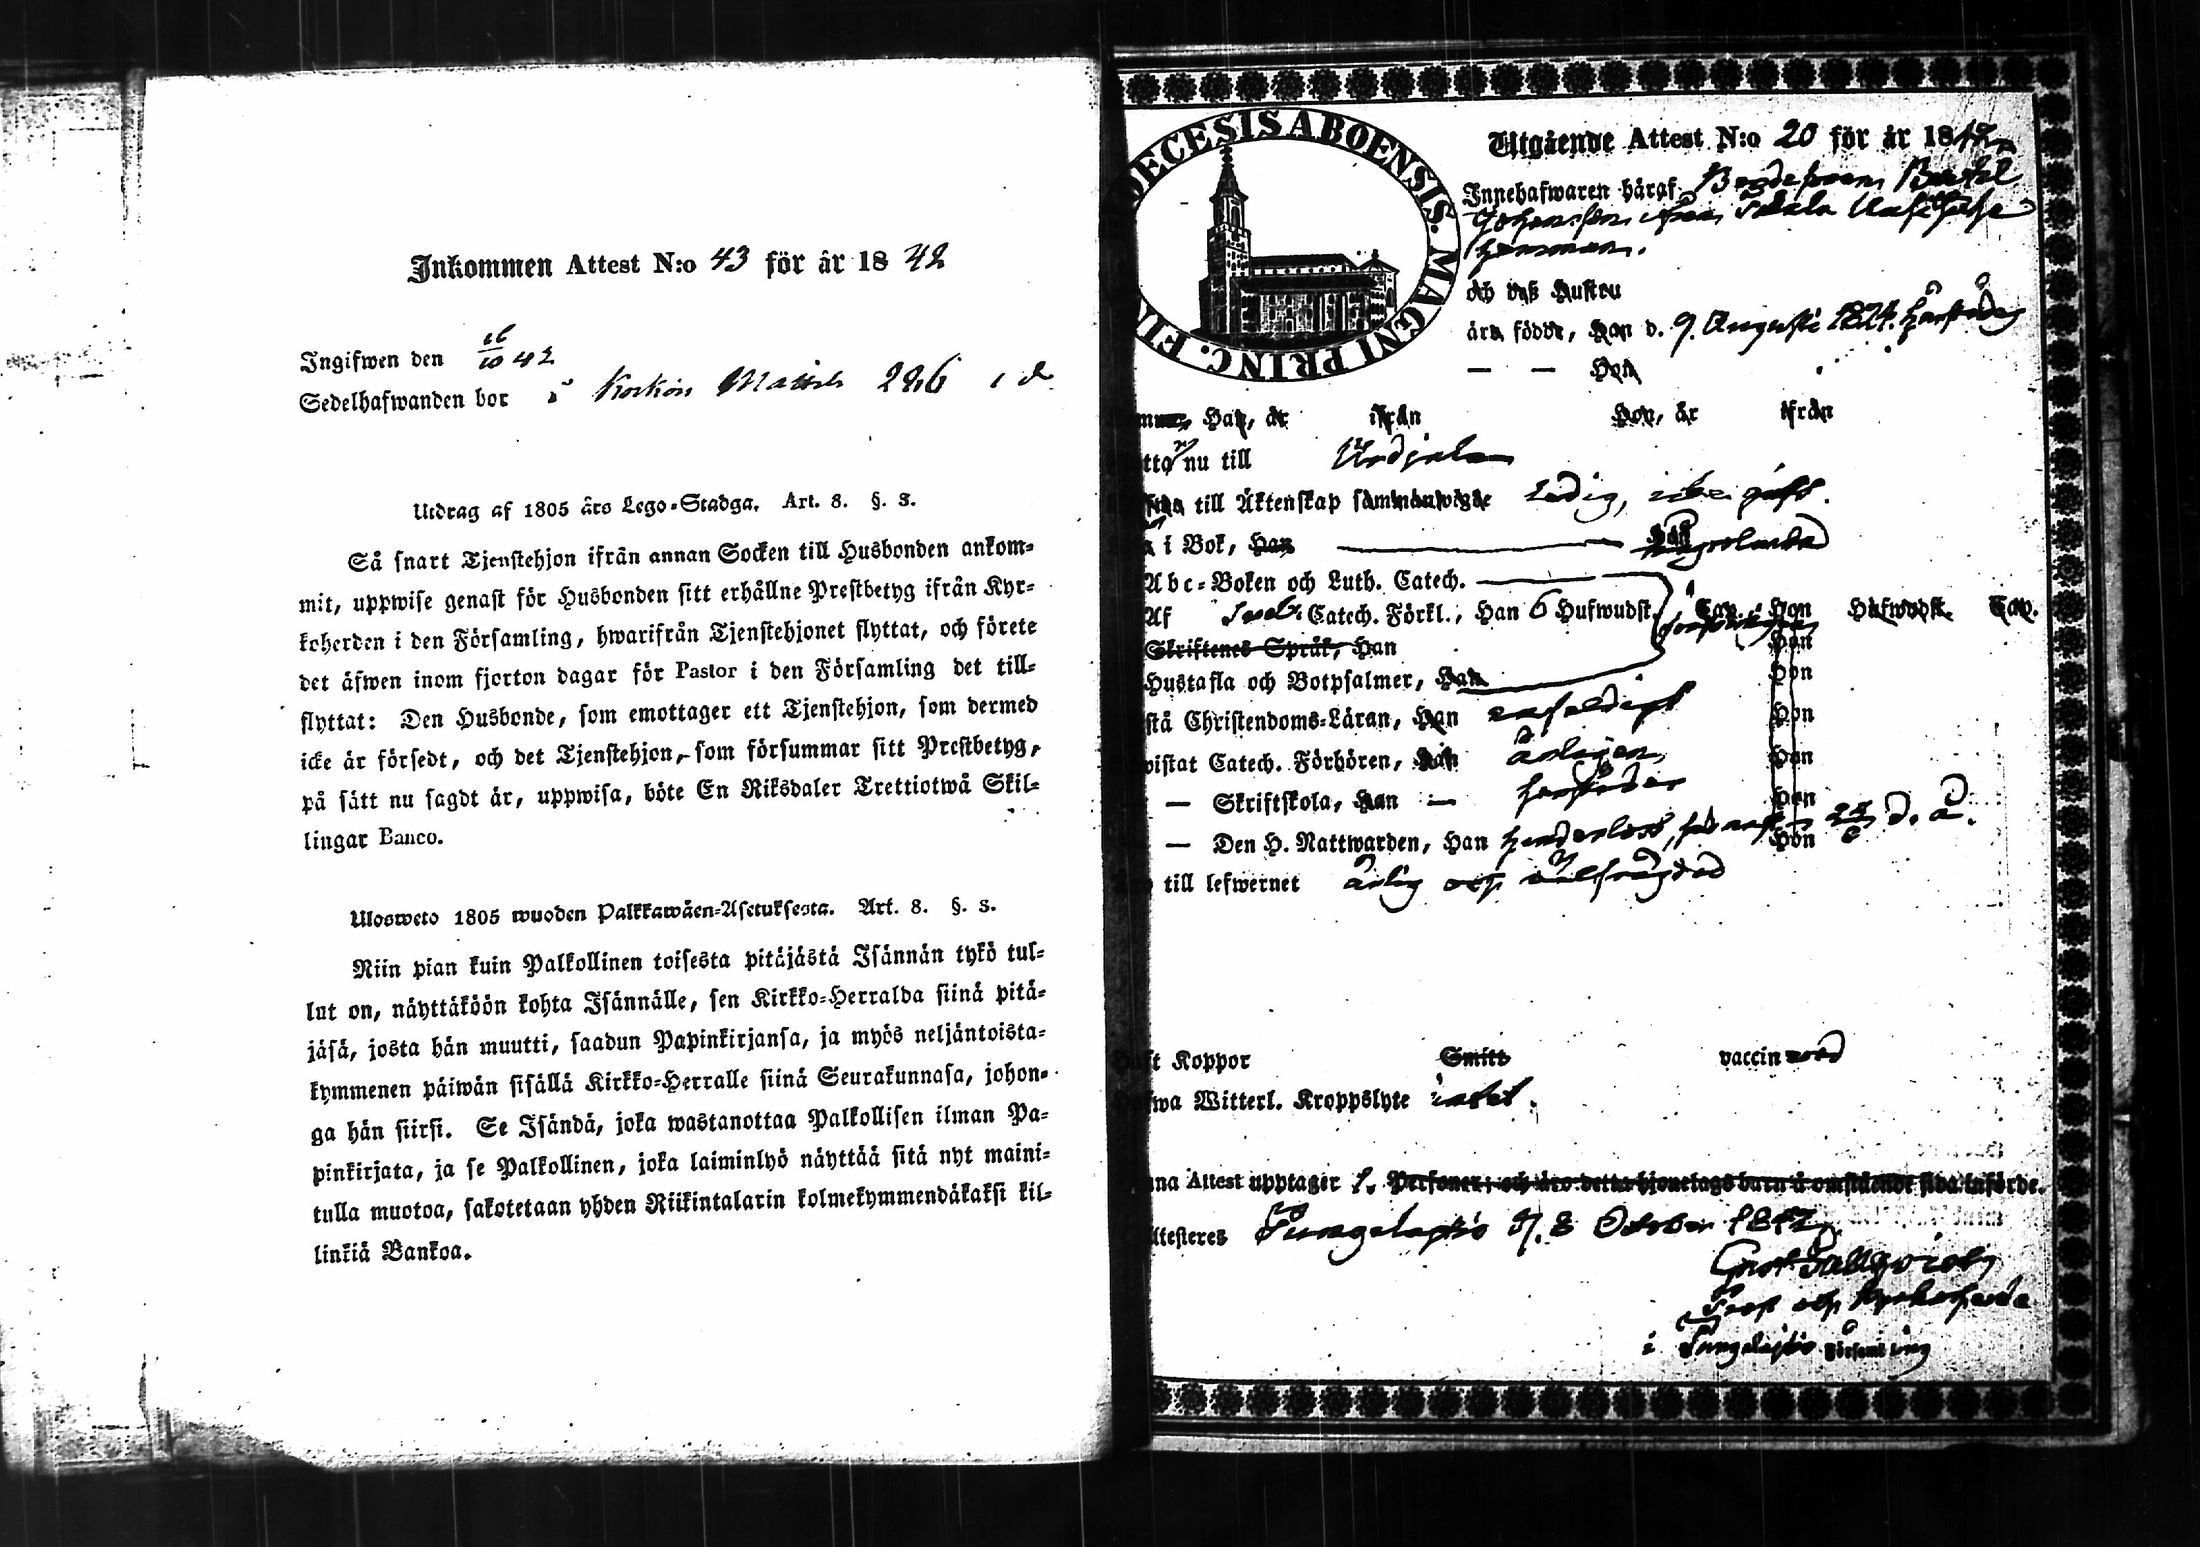 Inkommen Attest N:o 43 för år 1842
Ingifwen den 16/10 42
Sedelhafwanden bor å Korkon Mattila 286
Utdrag af 1805 års Lego-Stadga. Art. 8. §. 3.
Så snart Tjenstehjon ifrån annan Socken till Husbonden ankom-
mit, uppwise genast för Husbonden sitt erhållne Prestbetyg ifrån Kyr-
koherden i den Församling, hwarifrån Tjenstehjonet flyttat, och förete
det äfwen inom fjorton dagar för Pastor i den Församling det till-
flyttat: Den Husbonde, som emottager ett Tjenstehjon, som dermed
icke är försedt, och det Tjenstehjon, som försummar sitt Prestbetyg,
på sätt nu sagdt är, uppwisa, böte En Riksdaler Trettiotwå Skil-
lingar Banco.
Ulosweto 1805 wuoden Palkkawäen-Asetuksesta. Art. 8. §. 3.
Niin pian kuin Palkollinen toisesta pitäjästä Isännän tykö tul-
lut on, näyttäköön kohta Isännälle, sen Kirkko-Herralda siinä pitä-
jäsä, josta hän muutti, saadun Papinkirjansa, ja myös neljäntoista-
kymmenen päiwän sisällä Kirkko-Herralle siinä Seurakunnasa, johon-
ga hän siirsi. Se Isändä, joka wastanottaa Palkollisen ilman Pa-
pinkirjata, ja se Palkollinen, joka laiminlyö näyttää sitä nyt maini-
tulla muotoa, sakotetaan yhden Riikintalarin kolmekymmendäkaksi kil-
linkiä Bankoa.
DECESIS ABOENSIS. MAGNI PRINC. FIN
Utgående Attest N:o 20 för år 1842
Innehafwaren häraf
Johansson ifrån
och dess Hustru
äro födde, Han d. 9 Augusti 1824. härstädes
— — Hon
Han, är ifrån Hon, är ifrån
nu till Urdjala
till Äktenskap sammanwigde Ledig, icke gift.
i Bok, Han
Abc-Boken och Luth. Catech.
Af Catech. Förkl., Han 6 Hufwudst. Cap. Hon Hufwudst. Cap.
Skriftenes Språk, Han Hon
Hustafla och Botpsalmer, Han Hon
stå Christendoms-Läran, Han enfaldigt Hon
wistat Catech. Förhören, Han årligen Hon
— Skriftskola, Han — Hon
— Den H. Nattwarden, Han hinderlöst, Hon d. å.
till lefwernet ärlig och välfrägdad
Haft Koppor Smitt vaccinerad
Witterl. Kroppslyte intet.
Attest upptager 1. Personer; och äro detta hjonelags barn å omstående sida införde.
Attesteres Tungelapsis d. 8 October 1842
Gust. Hällqvist
Prost och Kyrkoherde
i Tungelapsis Församling